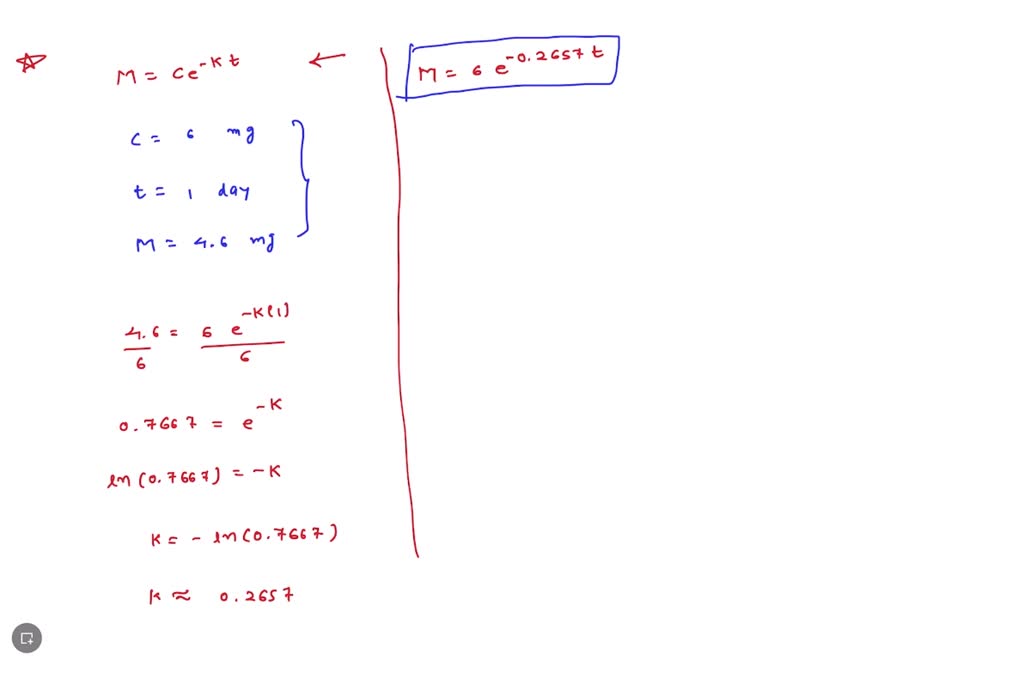 M = Ce^{-Kt} ←
C = 6 mg
t = 1 day
M = 4.6 mg
4.6/6 = 6 e^{-K(1)}/6
0.7667 = e^{-K}
ln(0.7667) = -K
K = - ln(0.7667)
K ≈ 0.2657
M = 6 e^{-0.2657 t}